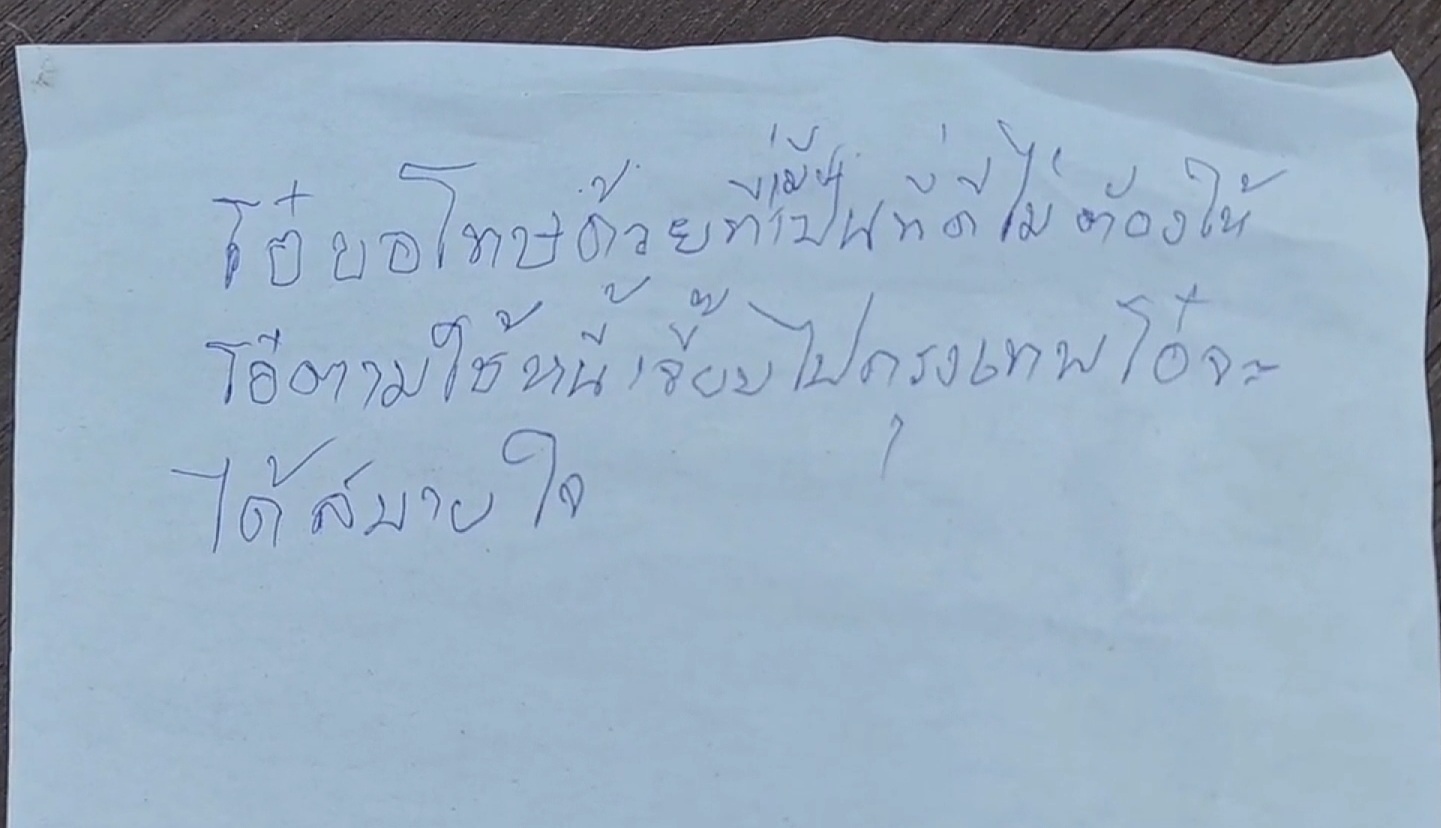 โอ๋ขอโทษด้วยที่เป็นที่ดีไม่ต้องให้
โอ๋ตามใช้หนี้เจี๊ยบไปกรุงเทพโอ๋จะ
ได้สบายใจ